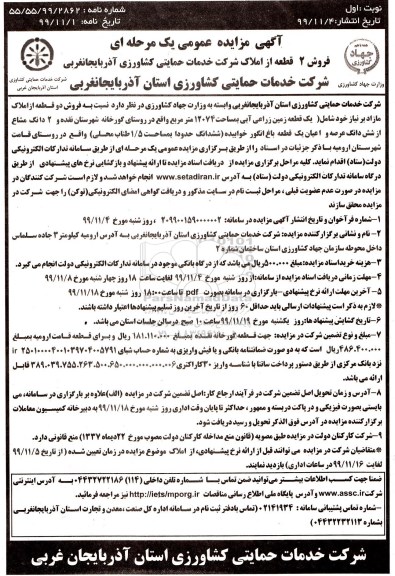 نوبت : اول
شماره نامه : ۵۵/۵۵/۹۹/۲۸۶۲
تاریخ انتشار: ۹۹/۱۱/۴
تاریخ نامه : ۹۹/۱۱/۱
آگهی مزایده عمومی یک مرحله ای
فروش ۲ قطعه از املاک شرکت خدمات حمایتی کشاورزی آذربایجانغربی
شرکت خدمات حمایتی کشاورزی استان آذربایجانغربی
جهاد
وزارت جهاد کشاورزی
شرکت خدمات حمایتی کشاورزی
استان آذربایجان غربی
شرکت خدمات حمایتی کشاورزی استان آذربایجانغربی وابسته به وزارت جهاد کشاورزی در نظر دارد نسبت به فروش دو قطعه از املاک
مازاد بر نیاز خود شامل( یک قطعه زمین زراعی آبی بمساحت ۱۲۰۲۴ متر مربع واقع در روستای گورخانه شهرستان نقده و ۲ دانگ مشاع
از شش دانگ عرصه و اعیان یک قطعه باغ انگور خوابیده (ششدانگ حدودا بمساحت ۱/۵ طناب محلی) واقع در روستای قامت
شهرستان ارومیه با ذکر جزئیات در اسناد را از طریق برگزاری مزایده عمومی یک مرحله ای از طریق سامانه تدارکات الکترونیکی
دولت(ستاد) اقدام نماید. کلیه مراحل برگزاری مزایده از دریافت اسناد مزایده تا ارائه پیشنهاد و بازگشایی نرخ های پیشنهادی از طریق
درگاه سامانه تدارکات الکترونیکی دولت (ستاد) به آدرس www.setadiran.ir انجام خواهد شد و لازم است شرکت کنندگان در
مزایده در صورت عدم عضویت قبلی ، مراحل ثبت نام در سایت مذکور و دریافت گواهی امضای الکترونیکی(توکن) را جهت شرکت در
مزایده محقق سازند
۱-شماره فراخوان و تاریخ انتشار آگهی مزایده در سامانه: ۲۰۹۹۰۰۱۵۹۰۰۰۰۰۲ ، روز شنبه مورخ ۹۹/۱۱/۴
۲-نام و نشانی برگزار کننده مزایده: شرکت خدمات حمایتی کشاورزی استان آذربایجانغربی به آدرس ارومیه کیلومتر۳ جاده سلماس
داخل محوطه سازمان جهاد کشاورزی استان ساختمان شماره ۲
۳-هزینه خرید اسناد مزایده:مبلغ ۵۰۰.۰۰۰ریال می باشد که از درگاه بانکی موجود در سامانه تدارکات الکترونیکی دولت انجام می گیرد.
۴-مهلت زمانی دریافت اسناد مزایده از سامانه:از روز شنبه مورخ ۹۹/۱۱/۴ لغایت ساعت ۱۸ روز چهار شنبه مورخ ۹۹/۱۱/۸
۵-آخرین مهلت ارائه نرخ پیشنهادی -بارگزاری در سامانه بصورت pdf تا ساعت ۱۸:۰۰ روز شنبه مورخ ۹۹/۱۱/۱۸
*لازم به ذکر است پیشنهادات ارسالی باید حداقل ۶۰ روز از تاریخ آخرین روز تسلیم پیشنهادها اعتبار داشته باشند.
۶-تاریخ گشایش پیشنهاد ها:روز یکشنبه مورخ ۹۹/۱۱/۱۹ ساعت ۱۰ صبح در سالن جلسات استان می باشد.
۷-مبلغ و نوع تضمین شرکت در مزایده: جهت قطعه گورخانه نقده به مبلغ ۱۸۱.۱۱۰.۰۰۰ ریال و برای قطعه قامت ارومیه بمبلغ
۴۸۶.۴۰۰.۰۰۰ریال است که به دو صورت ضمانتنامه بانکی و یا فیش واریزی به شماره حساب شبای
نزد بانک مرکزی از طریق دستور پرداخت ساتنا با شناسه واریز ۳۰ کاراکتری قابل
ارائه می باشد.
۸-آدرس و زمان تحویل اصل تضمین شرکت در فرآیند ارجاع کار:اصل تضمین شرکت در مزایده (الف)علاوه بر بارگزاری در سامانه، می
بایستی بصورت فیزیکی و در پاکت دربسته و ممهور ، حداکثر تا پایان وقت اداری روز شنبه مورخ ۹۹/۱۱/۱۸ به دبیرخانه کمیسیون معاملات
برگزار کننده مزایده در آدرس فوق الذکر تحویل و رسید دریافت شود.
۹-شرکت کارکنان دولت در مزایده طبق مصوبه (قانون منع مداخله کارکنان دولت مصوب مورخ ۲۲دیماه ۱۳۳۷) منع قانونی دارد.
*متقاضیان شرکت در مزایده می توانند قبل از ارائه نرخ پیشنهادی، از املاک موضوع مزایده در زمان تعیین شده ( از تاریخ ۹۹/۱۱/۵
لغایت ۹۹/۱۱/۱۶ در ساعات اداری) بازدید نمایند.
ضمنا جهت کسب اطلاعات بیشتر می توانید ضمن تماس با شماره تلفن داخلی (۱۱۴) ۰۴۴۳۲۷۷۲۱۸۶ به آدرس اینترنتی
شرکت www.assc.ir و آدرس پایگاه ملی اطلاع رسانی مناقصات http://iets/mporg.ir نیز مراجعه فرمایید.
شماره تماس پشتیبانی سامانه : ۰۲۱۴۱۹۳۴ (تماس با دفتر ثبت نام در سامانه اداره کل صنعت ،معدن و تجارت استان آذربایجانغربی
بشماره ۰۴۴۳۲۲۳۲۱۱۳)
شرکت خدمات حمایتی کشاورزی استان آذربایجان غربی